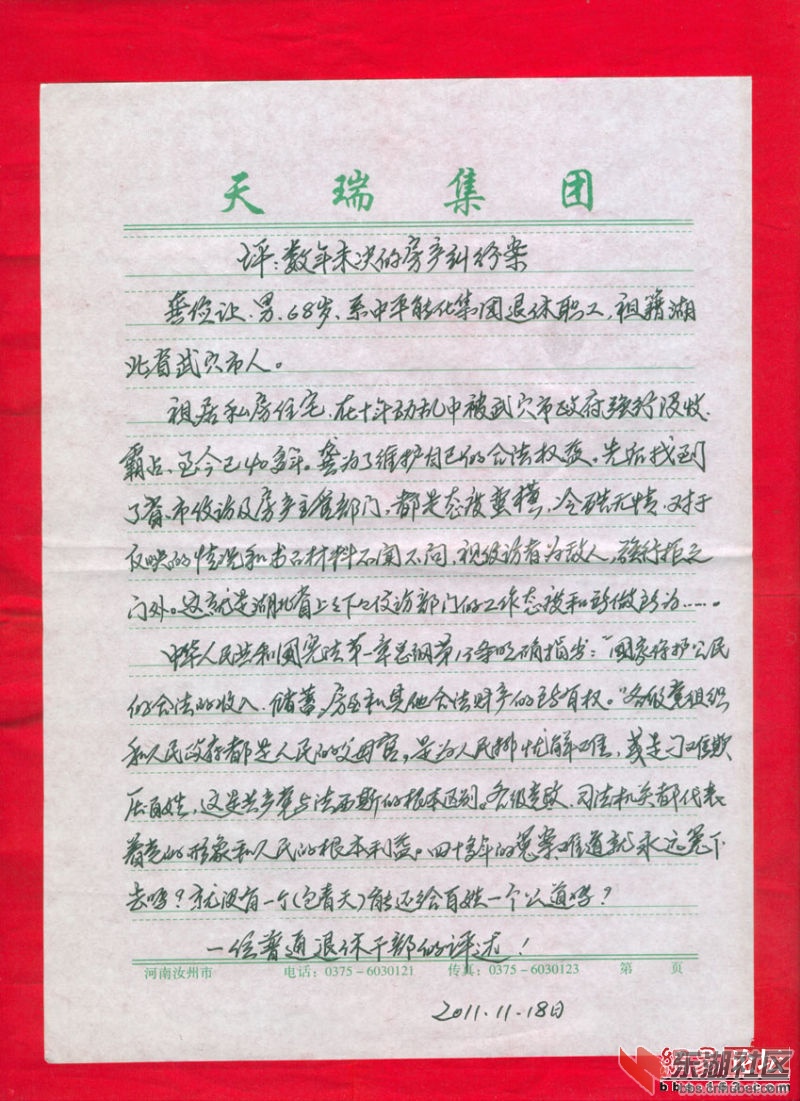 天瑞集团
评:数年未决的房产纠纷案
龚俭让、男、68岁、系中平能化集团退休职工,祖籍湖
北省武穴市人。
祖居私房住宅,在十年动乱中被武穴市政府强行没收、
霸占,至今已40多年。龚为了维护自己的合法权益。先后找到
了省、市信访及房产主管部门,都是态度蛮横,冷酷无情,对于
反映的情况和书面材料不闻不问,视信访者为敌人,强行拒之
门外。这就是湖北省上上下下信访部门的工作态度和所做所为……。
中华人民共和国宪法第一章总纲第13条明确指出:“国家保护公民
的合法的收入、储蓄、房屋和其他合法财产的所有权。”各级党组织
和人民政府都是人民的父母官,是为人民排忧解难,或是刁难欺
压百姓,这是共产党与法西斯的根本区别。各级党政、司法机关都代表
着党的形象和人民的根本利益。四十多年的冤案难道就永远冤下
去吗?就没有一个(包青天)能还给百姓一个公道吗?
一位普通退休干部的评述!
河南汝州市 电话:0375-6030121 传真:0375-6030123 第 页
2011.11.18日
东湖社区